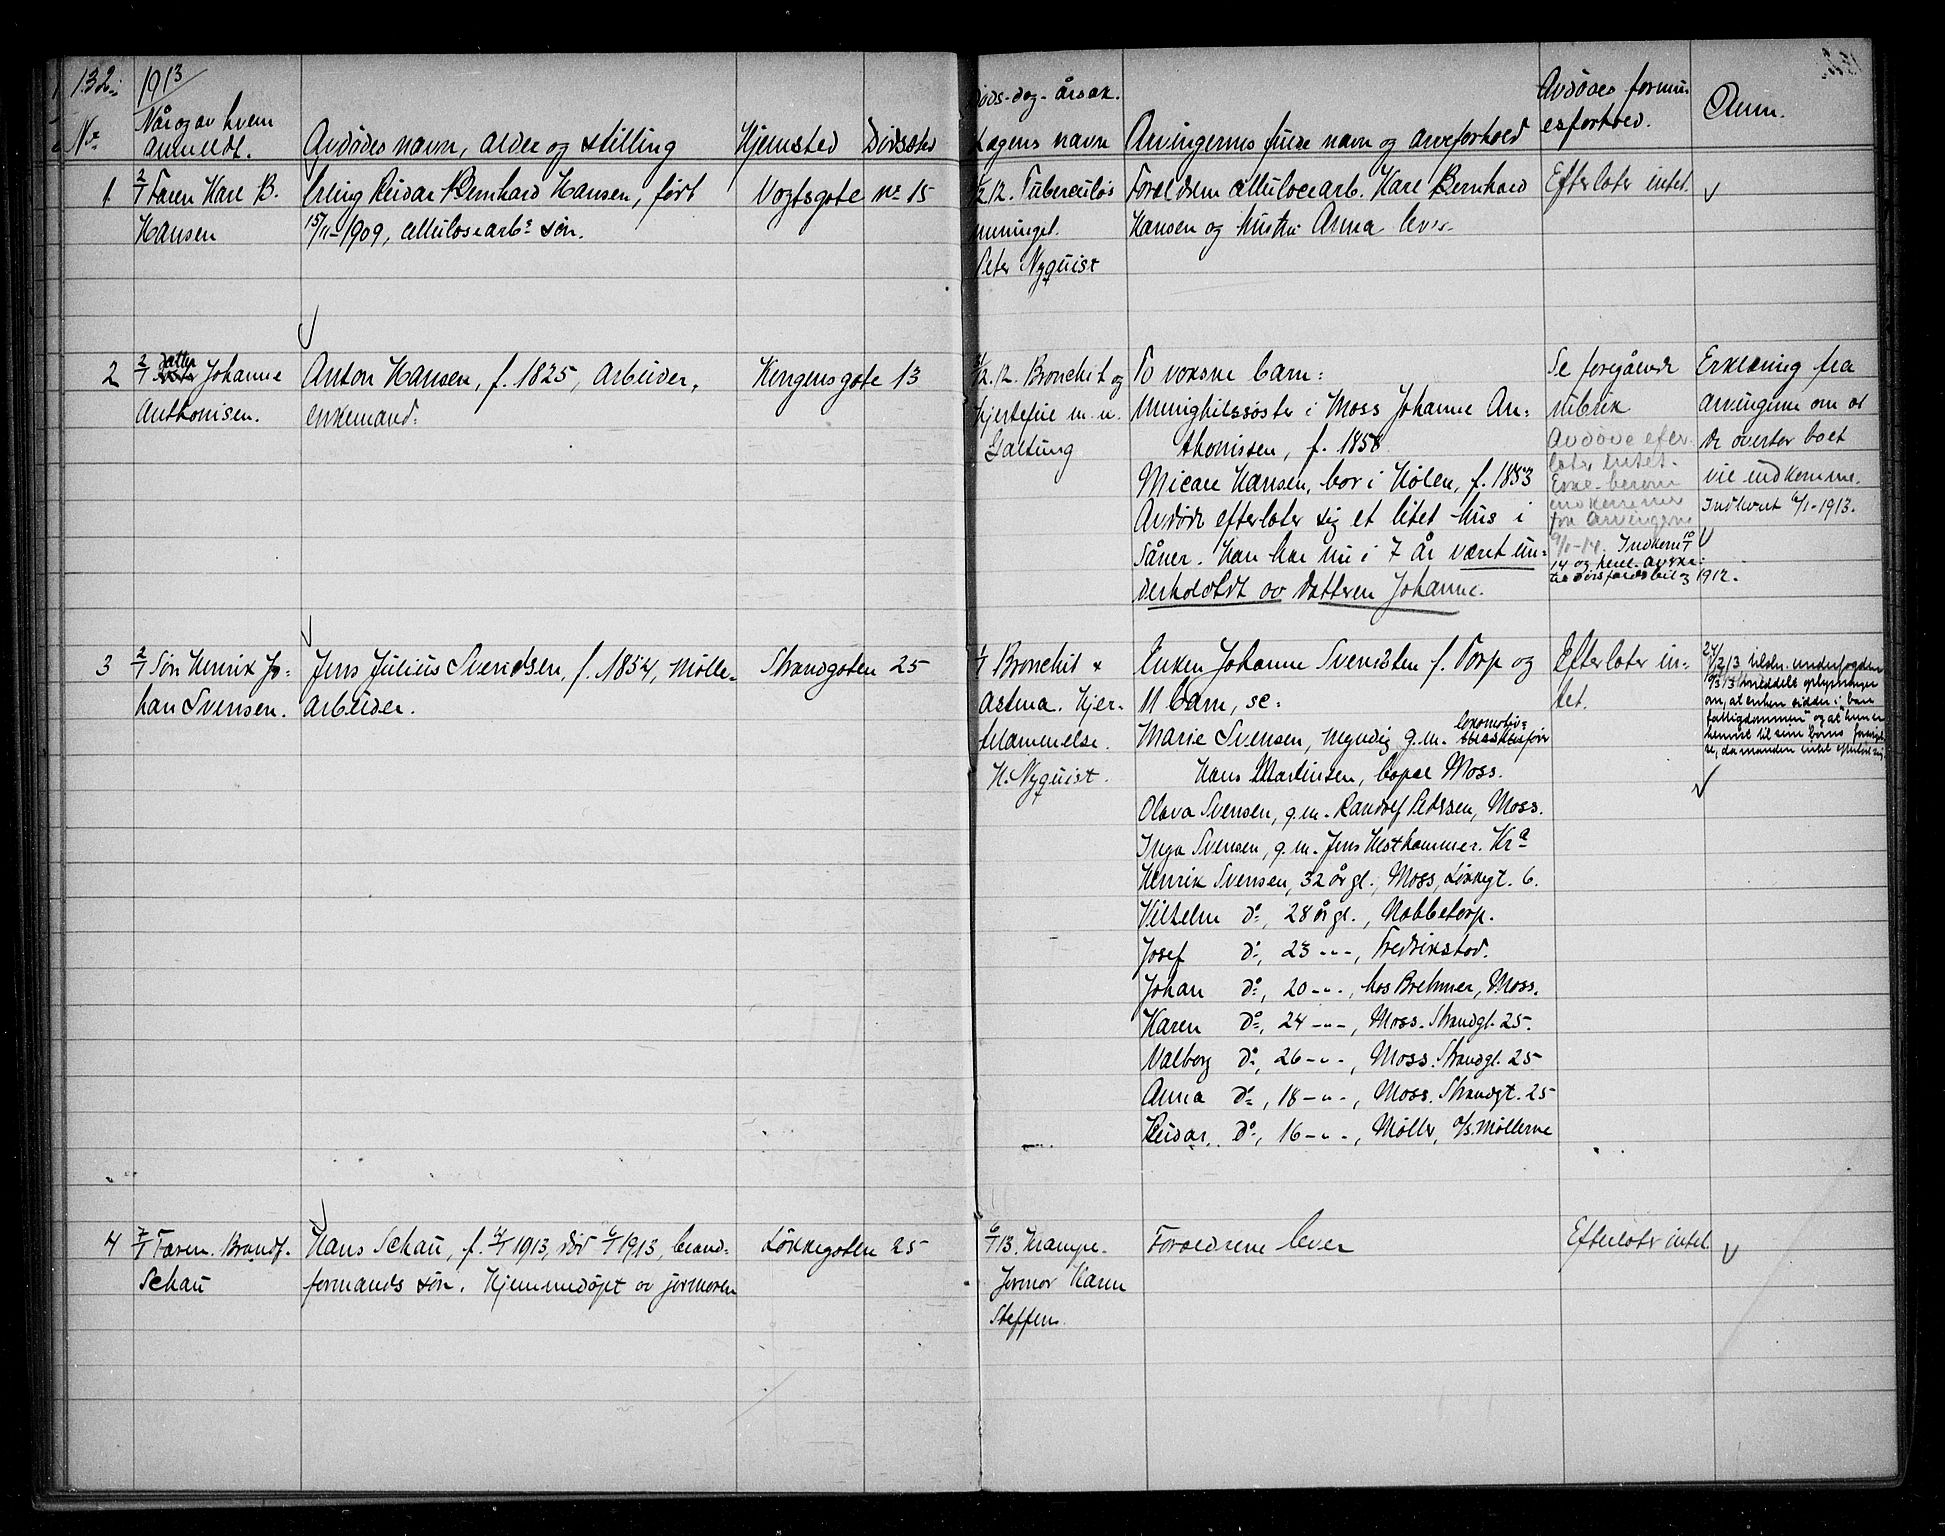 132.
1913
Nr
Når og av hvem
anmeldt.
Avdødes navn, alder og stilling
Hjemsted
Dødssted
Døds-dag-årsak.
Lægens navn
Arvingernes fulde navn og arveforhold
Avdødes formu-
esforhold.
Anm.
1. 2/1 Faren Karl B.
Hansen
Erling Reidar Bernhard Hansen, født
15/11-1909, cellulosearb. søn.
Vogtsgate nr 15
12. Tuberculøs
meninget.
Peter Nyquist
Forældrene cellulosearb. Karl Bernhard
Hansen og hustru Anna lever.
Efterlater intet
2 2/1 datter Johanne
Anthonisen.
Anton Hansen, f. 1825, arbeider,
enkemand.
Kongensgate 13
12. Bronchit og
hjertefeil m. m.
Galtung
To voksne barn:
Menighetssøster i Moss Johanne An-
thonissen, f. 1858
Micael Hansen, bor i Hølen, f. 1853
Avdøde efterlater sig et litet hus i
Såner. Han har nu i 7 år været un-
derholdt av datteren Johanne.
Se foregående
rubrik
Avdøde efter-
later intet.
Erkl. herom
indkommer
fra arvingerne
9/1-14. Indkom 10/1
14 og
Erklæring fra
arvingerne om at
de overtar boet
vil indkomme.
Indkomt 6/1-1913.
1912.
3 2/1 Søn Henrik Jo-
han Svensen.
Jens Julius Svendsen, f. 1854, mølle-
arbeider.
Strandgaten 25
1/1 Bronchit &
Astma. Hjer-
telammelse.
H. Nyquist.
Enken Johanne Svendsen f. Torp og
11 barn, se:
Marie Svensen, myndig g.m. lokomotiv-
Hans Martinsen, bopæl Moss.
Olava Svensen, g.m. Randolf Pedersen, Moss.
Inga Svensen, g.m. Jens Hesthammer. Kra
Henrik Svensen, 32 år gl., Moss, Løkkegt. 6.
Vilhelm do, 28 år gl., Nabbetorp.
Josef do, 23 -"-, Fredrikstad.
Johan do, 20 -"-, hos Brehmer, Moss.
Karen do, 24 -"-, Moss. Strandgt. 25.
Valborg do, 26 -"-, Moss. Strandgt. 25
Anna do, 18 -"-, Moss. Strandgt. 25
Reidar do, 16 -"-, Møller, a/s. Møllerne
Efterlater in-
tet.
24/2 13 tilskr. underfogden
10/3 13 meddelt oplysninger
om, at enken sidder i
fattigdommen" og at hun er
henvist til sine børns
da manden intet efterlot sig.
4 7/1 Faren. Brandf.
Schau
Hans Schau, f. 1913, død 6/1 1913, brand-
formands søn. Hjemmedøpt av jormoren
Løkkegaten 25
6/1 13. Krampe.
Jormor Karen
Steffens.
Forældrene lever
Efterlater intet